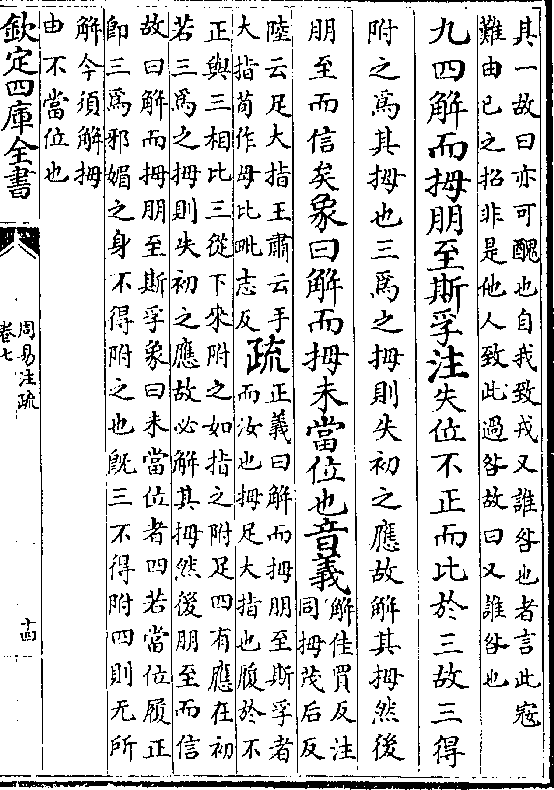 其一故曰亦可醜也自我致戎又誰咎也者言此寇
難由已之招非是他人致此過咎故曰又誰咎也
九四解而拇朋至斯孚注失位不正而比於三故三得
附之為其拇也三為之拇則失初之應故解其拇然後
朋至而信矣象曰解而拇未當位也音義解佳買反注
同拇茂后反
陸云足大指王肅云手
大指荀作母比毗志反疏正義曰解而拇朋至斯孚者
而汝也拇足大指也履於不
正與三相比三從下來附之如指之附足四有應在初
若三為之拇則失初之應故必解其拇然後朋至而信
故曰解而拇朋至斯孚象曰未當位者四若當位履正
即三為邪媚之身不得附之也既三不得附四則无所
解今須解拇
由不當位也
欽定四庫全書
周易注疏
卷七
十四